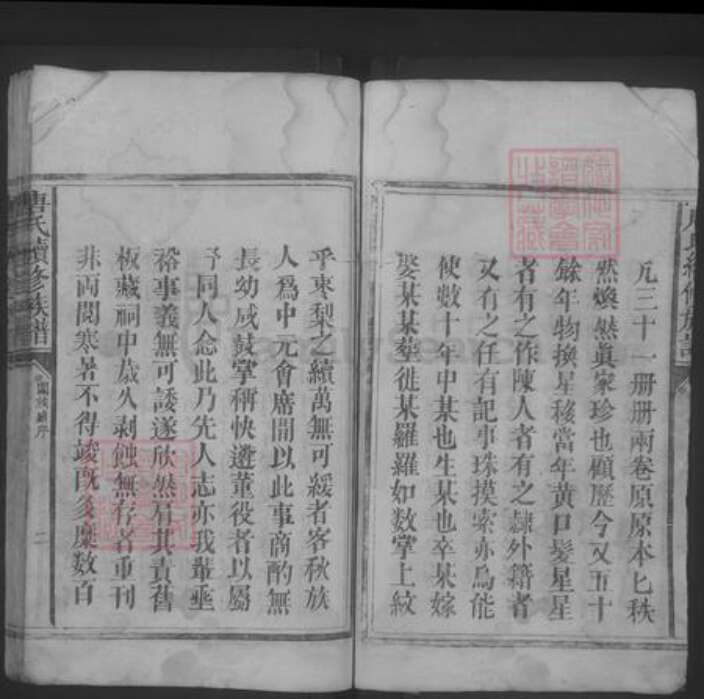 凡三十一册册兩卷原原本匕秩
然煥然真家珍也顧歷今又五十
餘年物換星移當年黄口髮星星
者有之作陳人者有之隷外籍者
又有之任有記事珠摸索亦烏能
使數十年中某也生某也卒某嫁
娶某某塟徙某羅羅如数掌上紋
乎枣梨之續萬無可緩者客秋族
人為中元會席間以此事商酌無
長幼咸鼓掌稱快遴董役者以屬
予同人念此乃先人志亦我輩亟
裕事義無可諉遂欣然肩其責舊
板藏祠中歲久剥蝕無存者重刊
非兩閱寒暑不得竣旣多糜数百
唐氏續修族譜
闔族續序
二